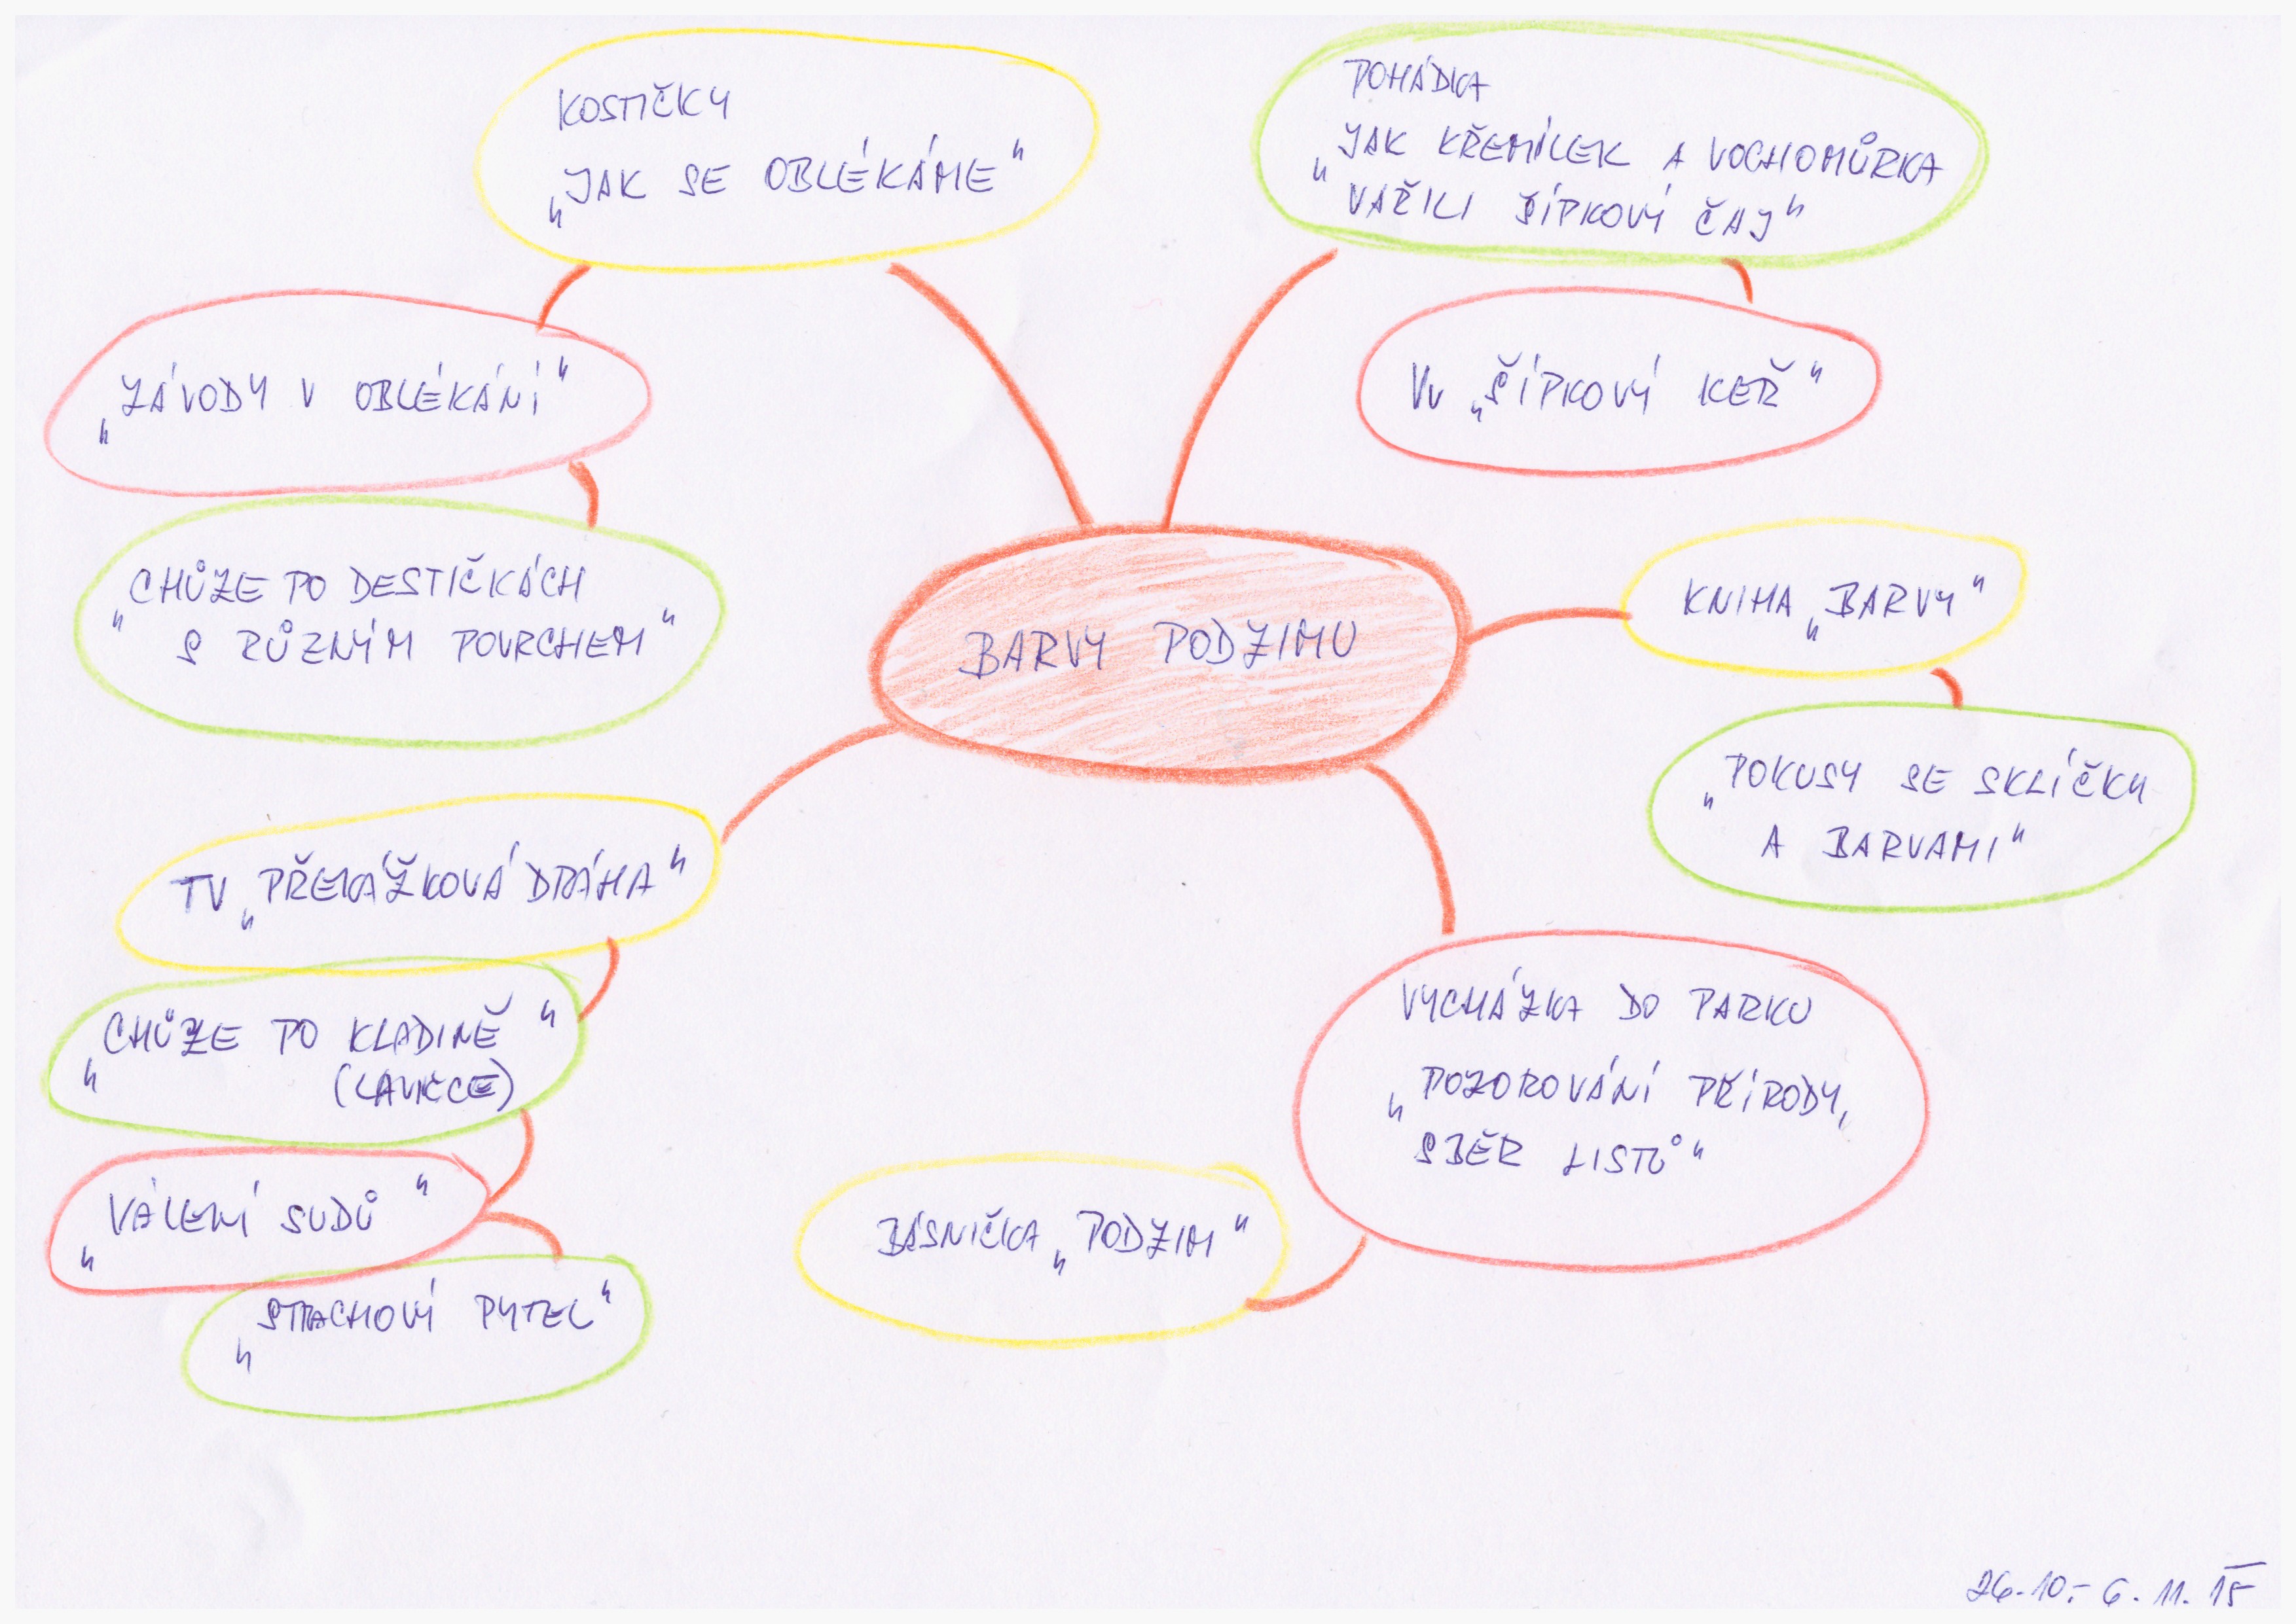 KOSTIČKY
„JAK SE OBLÉKÁME"
POHÁDKA
„JAK KŘEMÍLEK A VOCHOMŮRKA
VAŘILI ŠÍPKOVÝ ČAJ"
„ZÁVODY V OBLÉKÁNÍ"
Vv „ŠÍPKOVÝ KEŘ"
„CHŮZE PO DESTIČKÁCH
S RŮZNÝM POVRCHEM"
BARVY PODZIMU
KNIHA „BARVY"
„POKUSY SE SKLÍČKY
A BARVAMI"
TV „PŘEKÁŽKOVÁ DRÁHA"
„CHŮZE PO KLADINĚ"
(LAVIČCE)
„VÁLENÍ SUDŮ"
„STRACHOVÝ PYTEL"
VYCHÁZKA DO PARKU
„POZOROVÁNÍ PŘÍRODY,
SBĚR LISTŮ"
BÁSNIČKA „PODZIM"
26.10.- 6.11.15